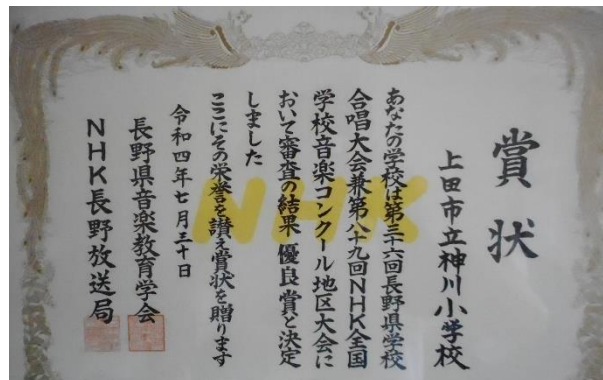 賞状
上田市立神川小学校
あなたの学校は第三十六回長野県学校
合唱大会兼第八十九回NHK全国
学校音楽コンクール地区大会に
おいて審査の結果 優良賞と決定
しました
ここにその栄誉を讃え賞状を贈ります
令和四年七月三十日
長野県音楽教育学会
NHK長野放送局
NHK